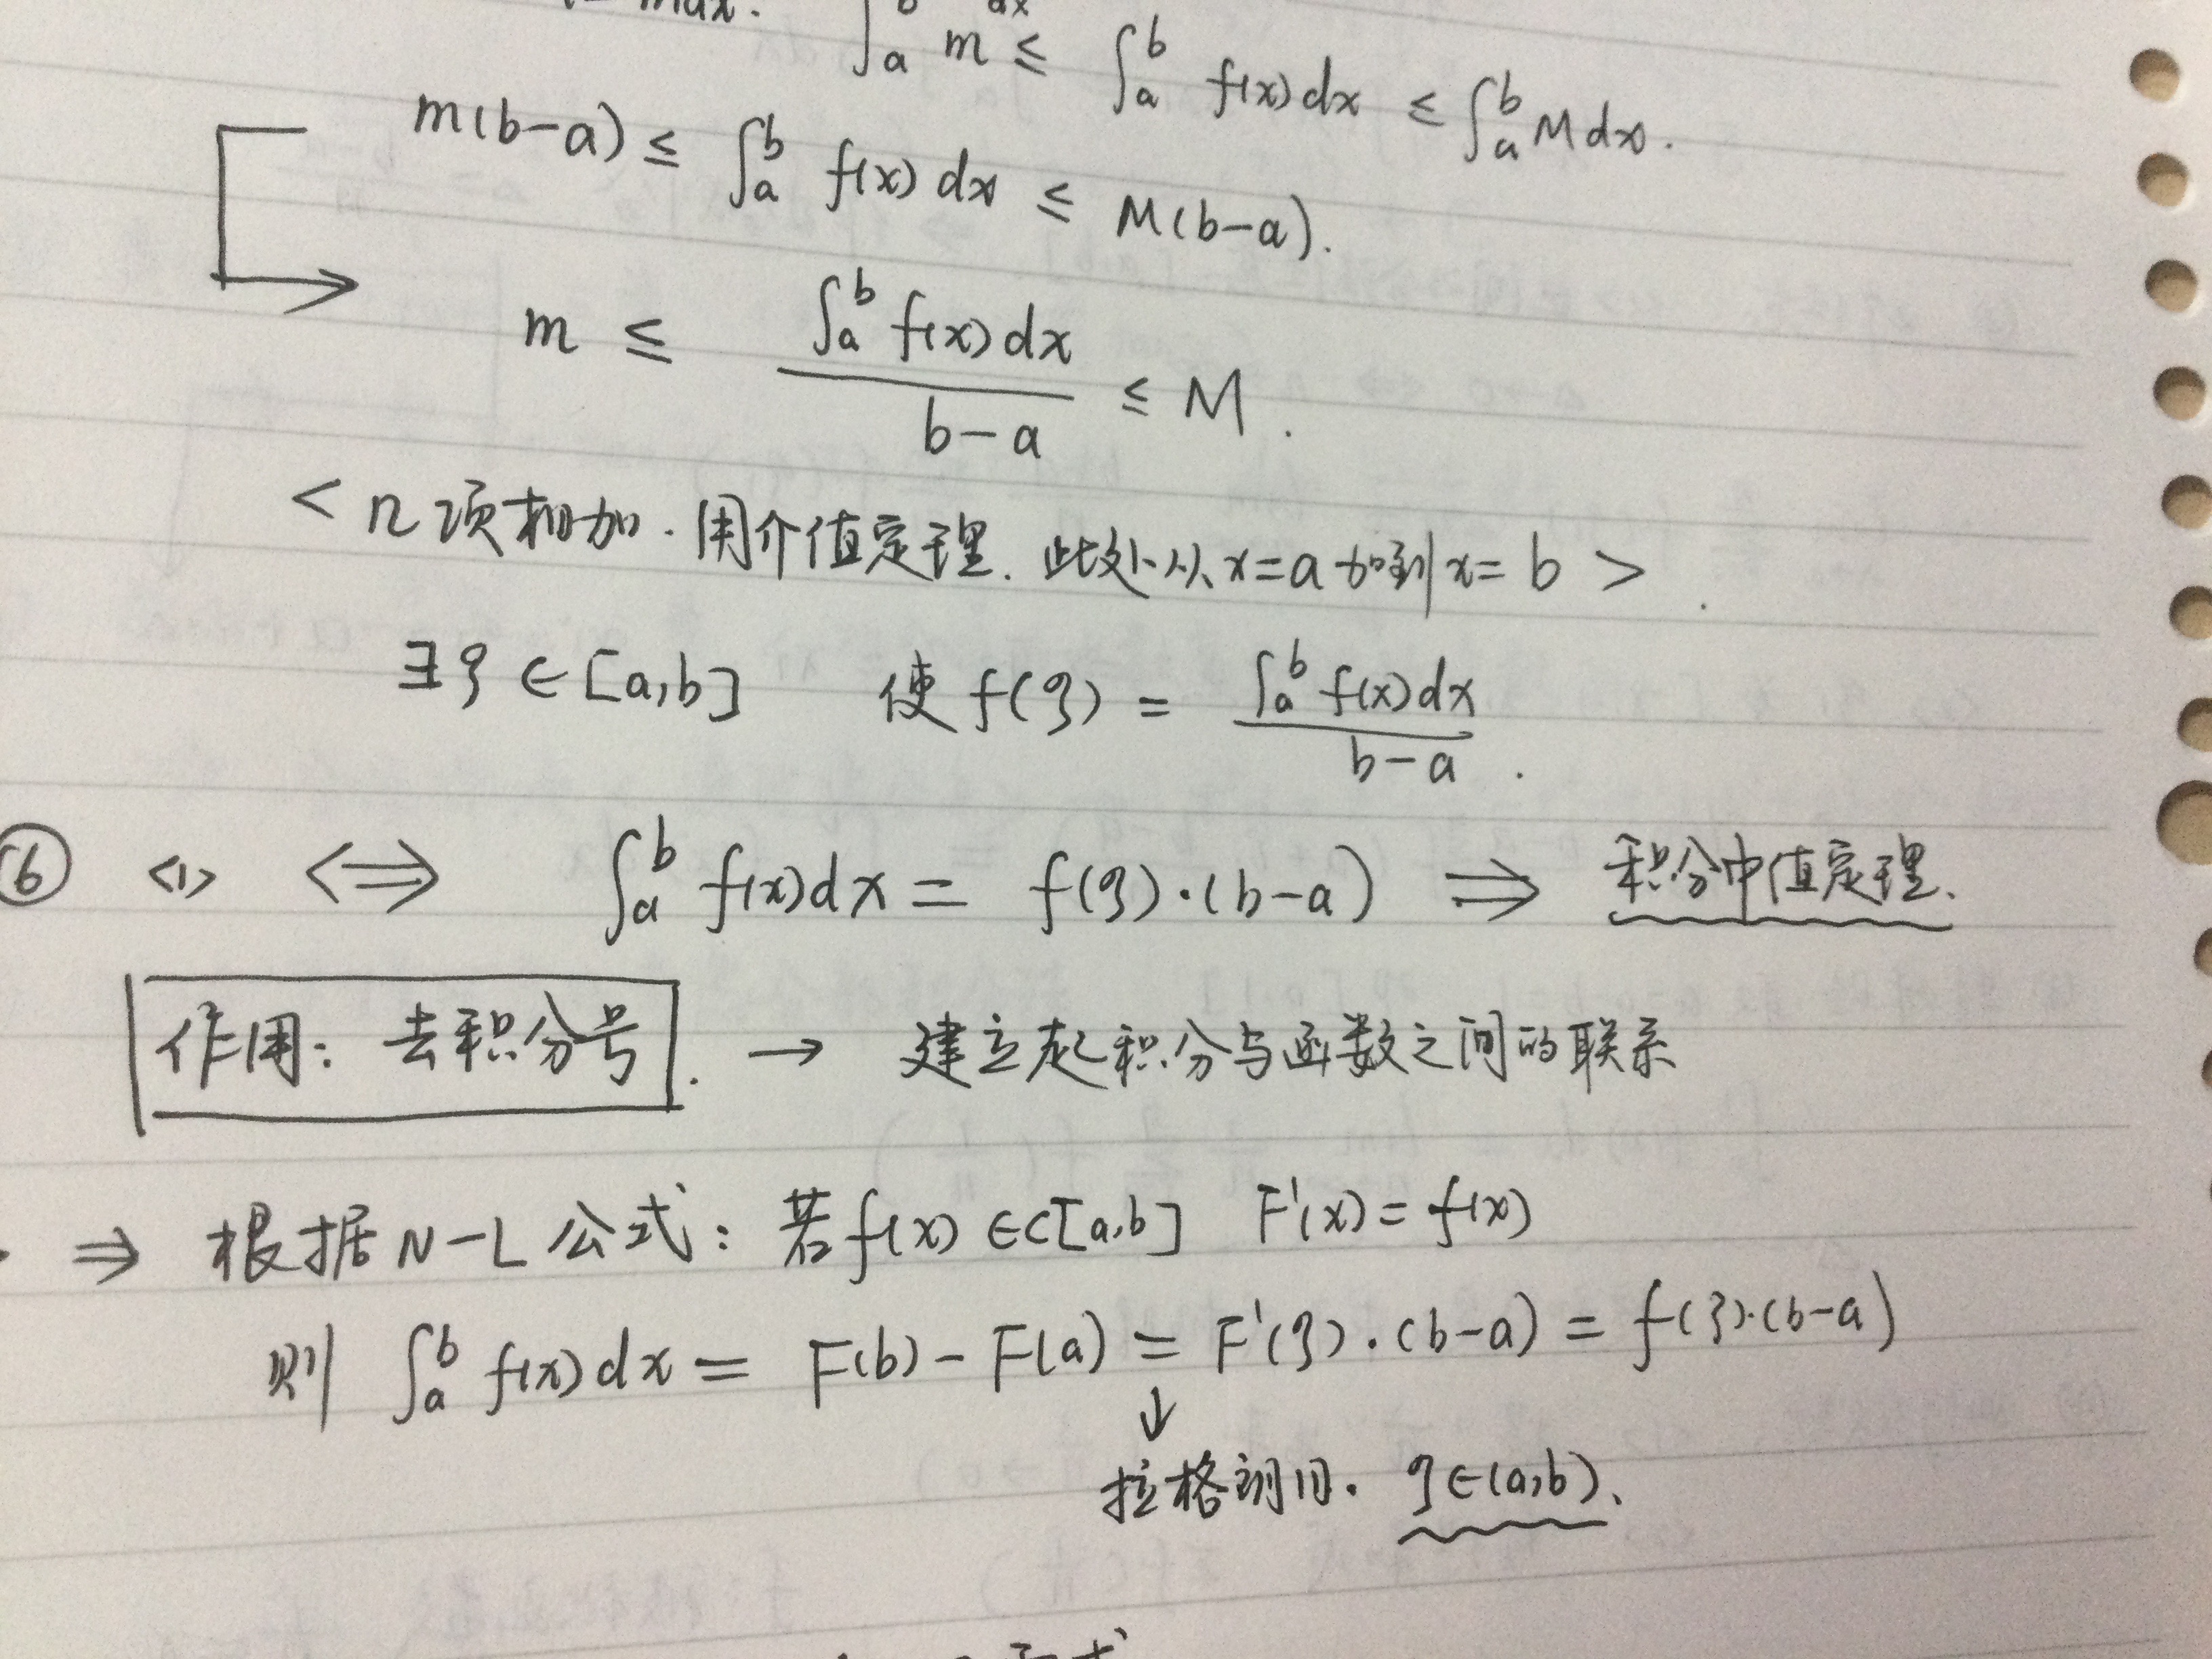 max.
∫_a^b m dx ≤ ∫_a^b f(x)dx ≤ ∫_a^b M dx.
m(b-a) ≤ ∫_a^b f(x)dx ≤ M(b-a).
m ≤ ∫_a^b f(x)dx / b-a ≤ M.
<n项相加.用介值定理.此处从x=a加到x=b>.
∃ξ∈[a,b] 使f(ξ)= ∫_a^b f(x)dx / b-a.
⑥ <1> <=> ∫_a^b f(x)dx = f(ξ)·(b-a) ⇒ 积分中值定理.
作用: 去积分号. → 建立起积分与函数之间的联系
⇒ 根据N-L公式: 若f(x)∈C[a,b] F'(x)=f(x)
则 ∫_a^b f(x)dx = F(b)-F(a) = F'(ξ)·(b-a) = f(ξ)·(b-a)
↓
拉格朗日. ξ∈(a,b).